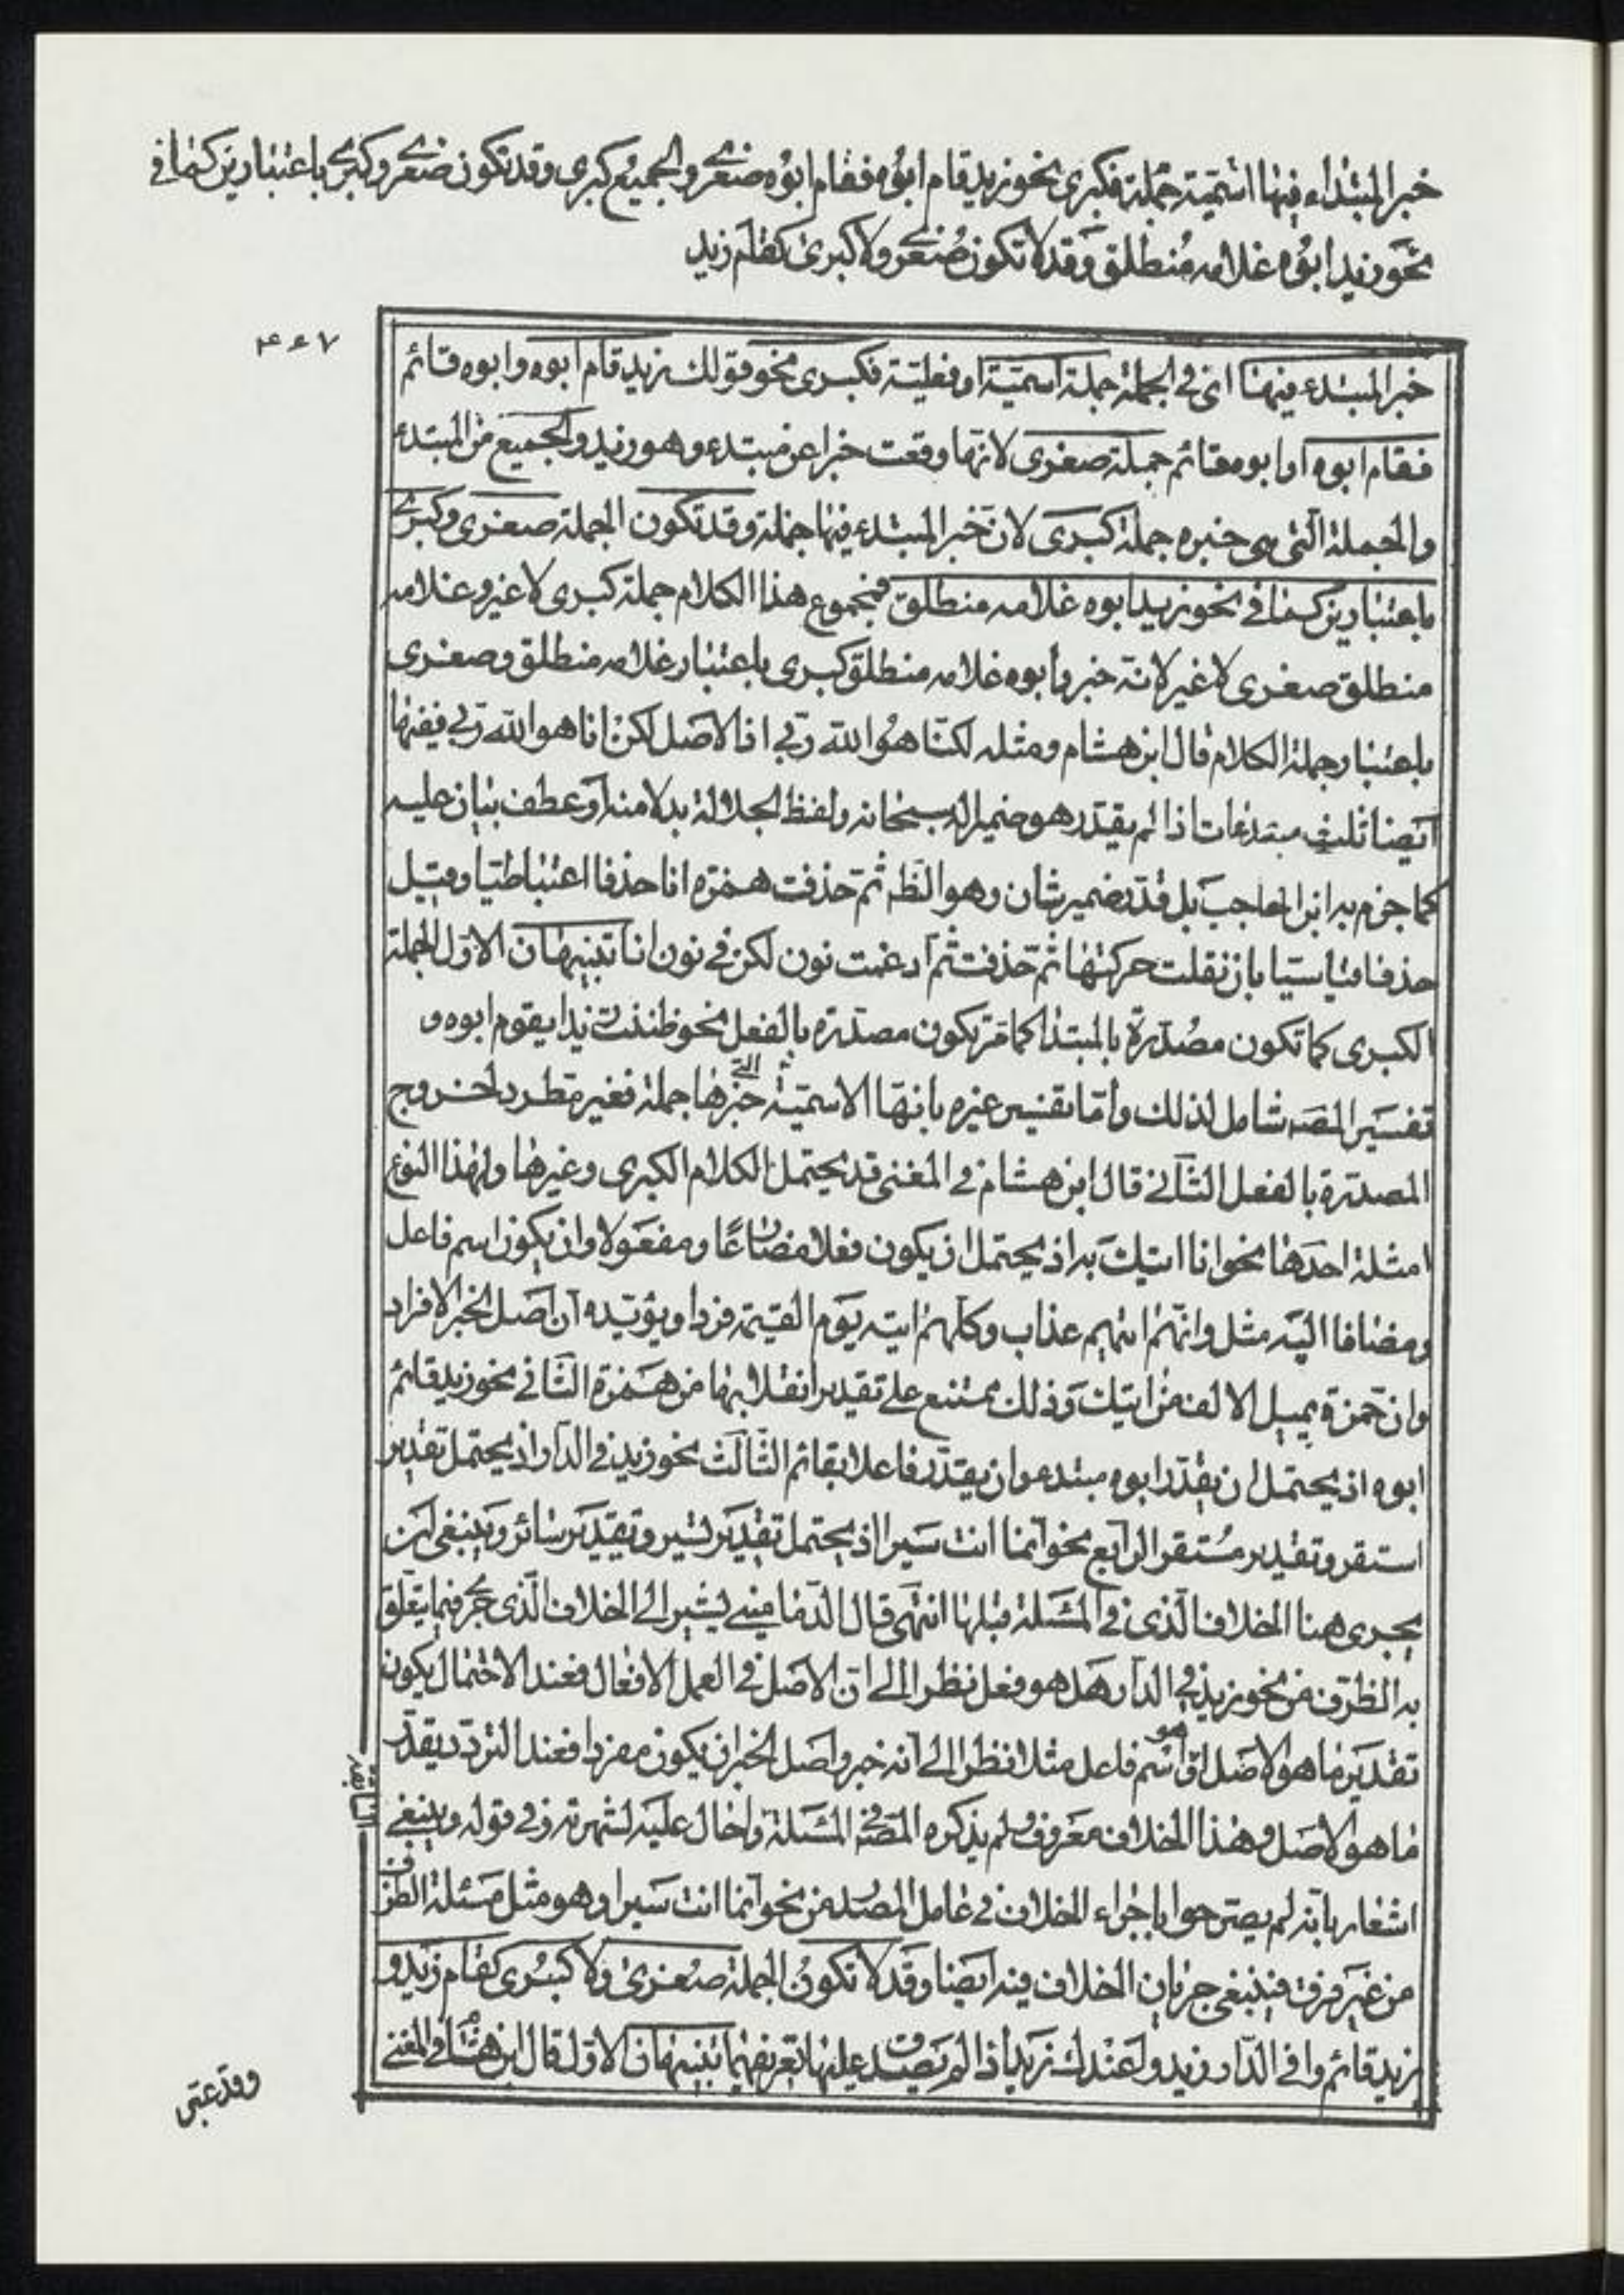 خبر المبتداء فيها اسميّة جملة فكبرى نحو زيد قام ابوه فقام ابوه صغرى والجميع كبرى وقد تكون صغرى وكبرى باعتبارين كما في
نحو زيد ابوه غلامه منطلق وقد لا تكون صغرى ولا كبرى كقام زيد
٤٤٧
خبر المبتدء فيها اى في الجملة جملة اسميّة او فعليّة فكبرى نحو قولك زيد قام ابوه وابوه قائم
فقام ابوه او ابوه قائم جملة صغرى لانها وقعت خبرا عن مبتدء وهو زيد والجميع من المبتدء
والجملة التى هى خبره جملة كبرى لانّ خبر المبتدء فيها جملة وقد تكون الجملة صغرى وكبرى
باعتبارين كما في نحو زيد ابوه غلامه منطلق فمجموع هذا الكلام جملة كبرى لا غير وغلامه
منطلق صغرى لا غير لانّه خبر وأبوه غلامه منطلق كبرى باعتبار غلامه منطلق وصغرى
باعتبار جملة الكلام قال ابن هشام ومثله لكنّا هو الله ربّي اذ الاصل لكن انا هو الله ربّي ففيها
ايضا ثلث مبتدءات اذا لم يقدّر هو ضميرا له سبحانه ولفظ الجلالة بدلا منه او عطف بيان عليه
كما جزم به ابن الحاجب بل قدّر ضمير شان وهو الظ ثمّ حذفت همزة انا حذفا اعتباطيّا وقيل
حذفا قياسيّا بان نقلت حركتها ثمّ حذفت ثمّ ادغمت نون لكن في نون انا تنبيهان الاوّل الجملة
الكبرى كما تكون مصدّرة بالمبتدا كما مرّ تكون مصدّرة بالفعل نحو ظننت زيدا يقوم ابوه و
تفسير المصه شامل لذلك وأمّا تفسير غيره بانهّا الاسميّة الّتى خبرها جملة فغير مطرد لخروج
المصدرة بالفعل الثّاني قال ابن هشام في المغنى قد يحتمل الكلام الكبرى وغيرها ولهذا النوع
امثلة احدها نحو انا اتيك به اذ يحتمل ان يكون فعلا مضارعًا ومفعولا وان يكون اسم فاعل
ومضافا اليه مثل وانّهم اتيهم عذاب وكلّهم اتيه يوم القيمة فردا ويؤيّده انّ اصل الخبر الافراد
وان حمزة يميل الالف من اتيك وذلك ممتنع على تقدير انقلابها من همزة الثّاني نحو زيد قائم
ابوه اذ يحتمل ان يقدّر ابوه مبتدء وان يقدّر فاعلا بقائم الثّالث نحو زيد في الدّار اذ يحتمل تقدير
استقر وتقدير مستقر الرّابع نحو انّما انت سيرا اذ يحتمل تقدير تسير وتقدير سائر وينبغى ان
يجرى هنا الخلاف الّذى في المسئلة قبلها انتهى قال الدّمامينى يشير الى الخلاف الّذى جرى فيما يتعلّق
به الظرف من نحو زيد في الدّار هل هو فعل نظرا الى انّ الاصل في العمل الافعال فعند الاحتمال يكون
تقدير ما هو الاصل او هو اسم فاعل مثلا نظرا الى انه خبر واصل الخبر ان يكون مفردا فعند التردّد يقدّر
ما هو الاصل وهذا الخلاف معروف ولم يذكره المصّ في المسئلة واحال عليه لشهرته وفي قوله وينبغى
اشعار بانّه لم يصرّحوا باجراء الخلاف في عامل المصدر من نحو انّما انت سيرا وهو مثل مسئلة الظرف
من غير فرق فينبغى جريان الخلاف فيه ايضا وقد لا تكون الجملة صغرى ولا كبرى كقام زيد و
زيد قائم وا في الدّار زيد و ا عندك زيد اذا لم يصدق عليها تعريفهما تنبيهان الاوّل قال ابن هشام في المغنى